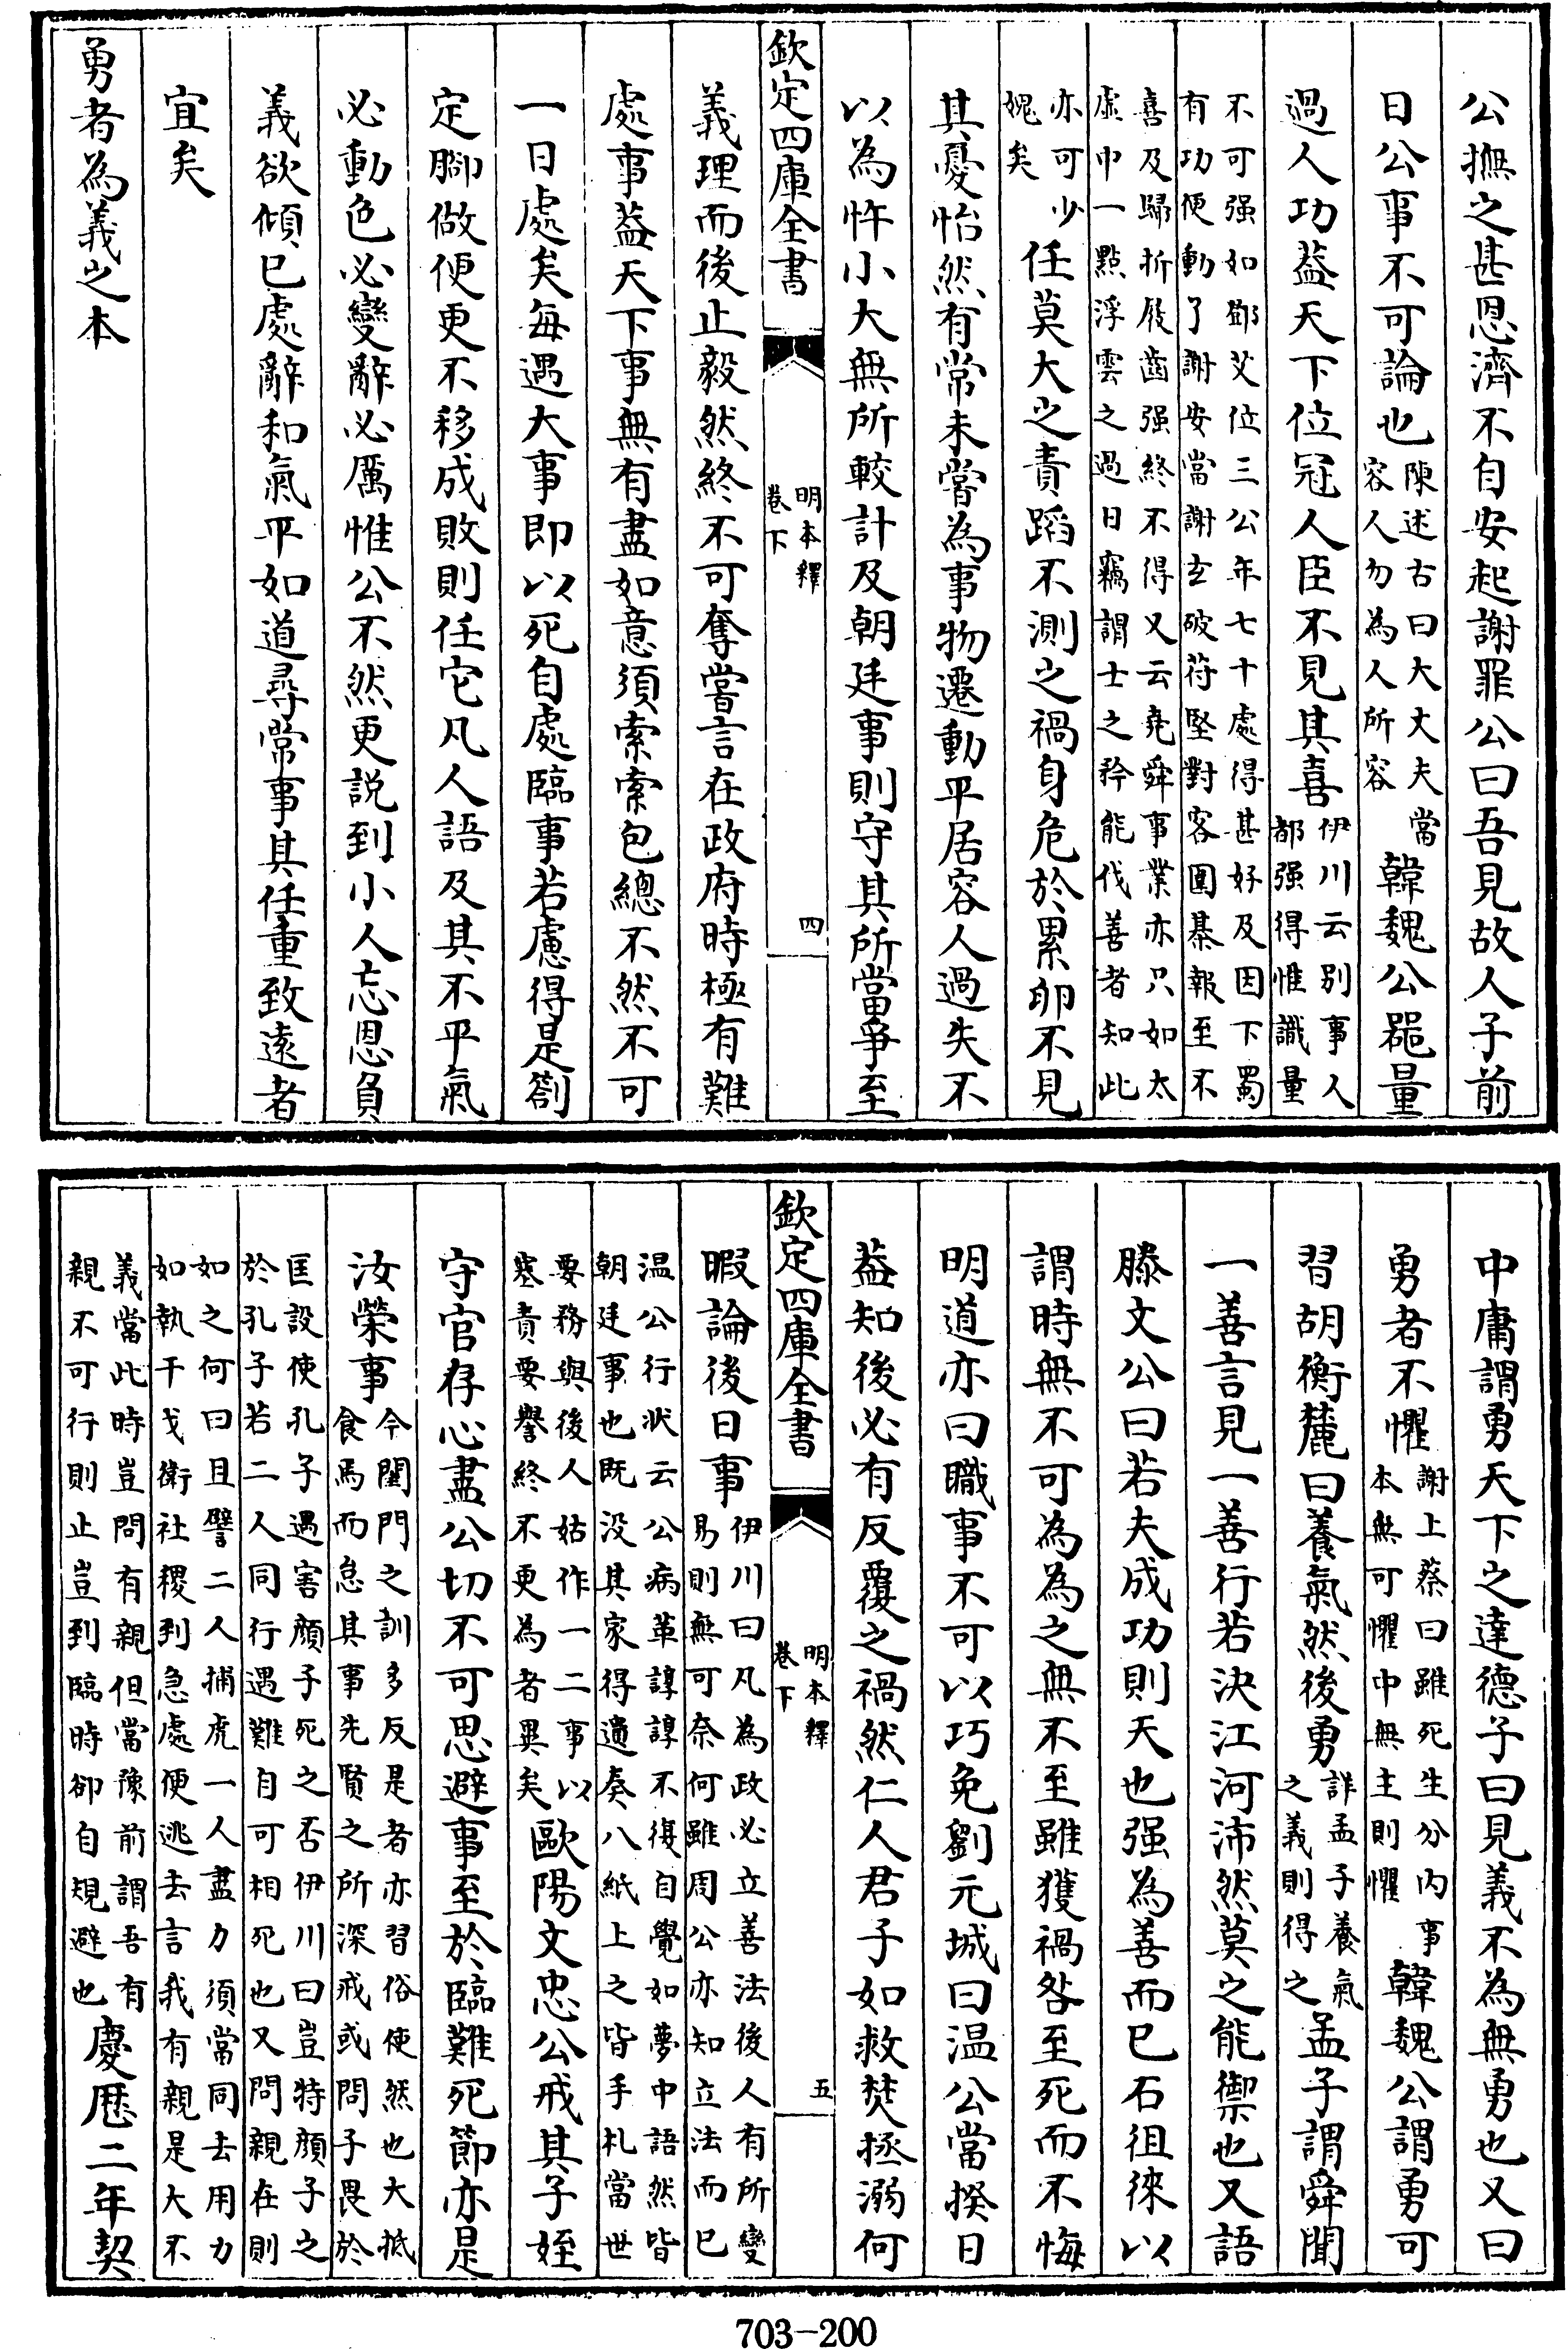 公撫之甚恩濟不自安起謝罪公曰吾見故人子前
日公事不可論也陳述古曰大丈夫當容人勿為人所容韓魏公噐量
過人功葢天下位冠人臣不見其喜伊川云别事人都强得惟識量
不可强如鄧艾位三公年七十處得甚好及因下蜀有功便動了謝安當謝玄破苻堅對客圍棊報至不
喜及歸折屐齒强終不得又云堯舜事業亦只如太虛中一點浮雲之過目竊謂士之矜能伐善者知此
亦可少媿矣任莫大之責蹈不測之禍身危於累卵不見
其憂怡然有常未嘗為事物遷動平居容人過失不
以為忤小大無所較計及朝廷事則守其所當爭至
欽定四庫全書 明本釋卷下 四
義理而後止毅然終不可奪嘗言在政府時極有難
處事葢天下事無有盡如意須索索包總不然不可
一日處矣每遇大事即以死自處臨事若慮得是劄
定脚做便更不移成敗則任它凡人語及其不平氣
必動色必變辭必厲惟公不然更説到小人忘恩負
義欲傾已處辭和氣平如道尋常事其任重致遠者
宜矣
勇者為義之本
中庸謂勇天下之達德子曰見義不為無勇也又曰
勇者不懼謝上蔡曰雖死生分内事本無可懼中無主則懼韓魏公謂勇可
習胡衡麓曰養氣然後勇詳孟子養氣之義則得之孟子謂舜聞
一善言見一善行若決江河沛然莫之能禦也又語
滕文公曰若夫成功則天也强為善而已石徂徠以
謂時無不可為為之無不至雖獲禍咎至死而不悔
明道亦曰職事不可以巧免劉元城曰温公當揆日
葢知後必有反覆之禍然仁人君子如救焚拯溺何
欽定四庫全書 明本釋卷下 五
暇論後日事伊川曰凡為政必立善法後人有所變易則無可奈何雖周公亦知立法而已
温公行狀云公病革諄諄不復自覺如夢中語然皆朝廷事也既没其家得遺奏八紙上之皆手札當世
要務與後人姑作一二事以塞責要譽終不更為者異矣歐陽文忠公戒其子姪
守官存心盡公切不可思避事至於臨難死節亦是
汝榮事今閨門之訓多反是者亦習俗使然也大抵食焉而怠其事先賢之所深戒或問子畏於
匡設使孔子遇害顔子死之否伊川曰豈特顔子之於孔子若二人同行遇難自可相死也又問親在則
如之何曰且譬二人捕虎一人盡力須當同去用力如執干戈衛社稷到急處便逃去言我有親是大不
義當此時豈問有親但當豫前謂吾有親不可行則止豈到臨時卻自規避也慶厯二年契
703-200